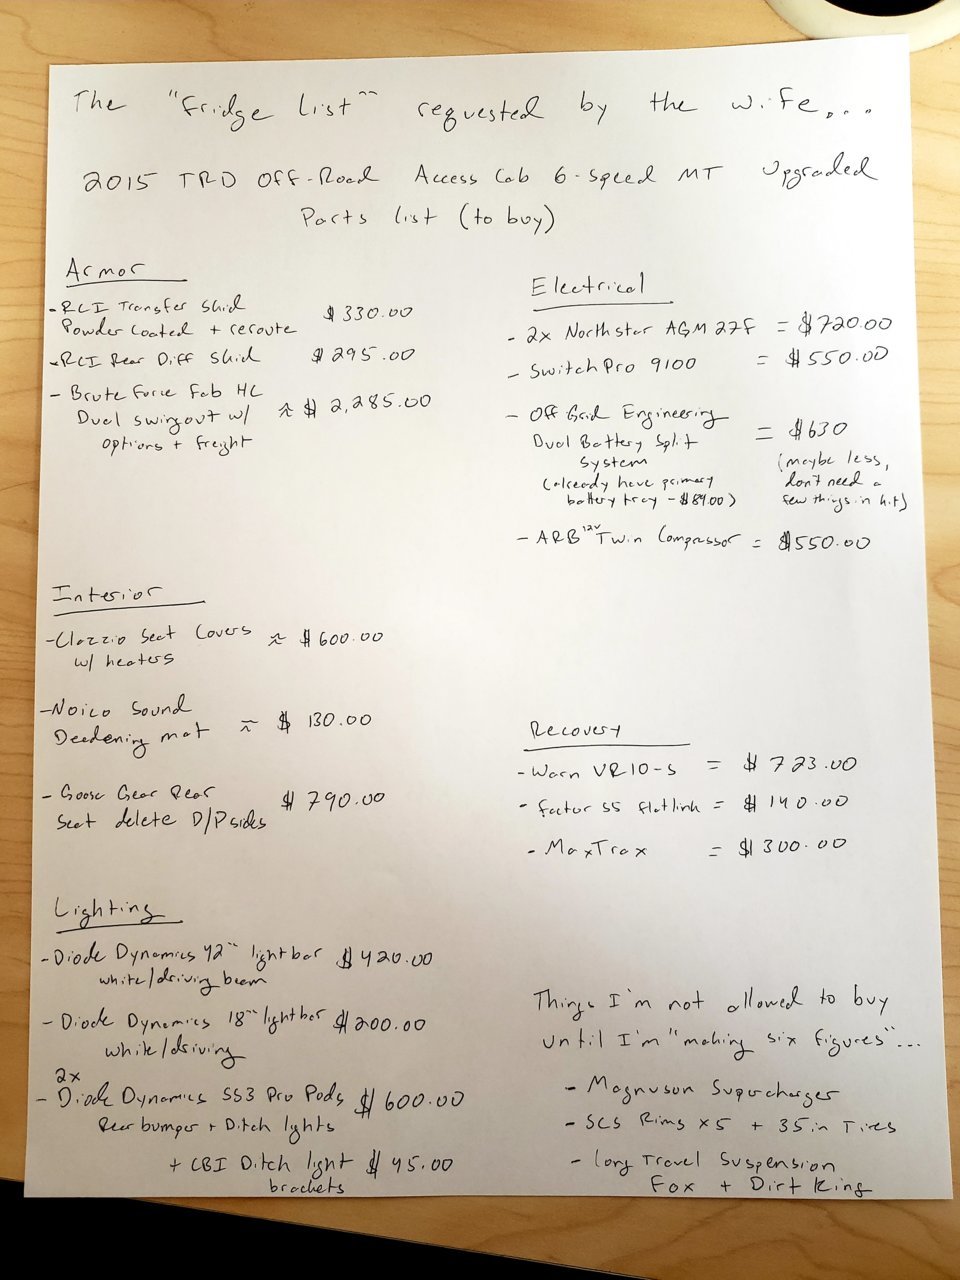 The "Fridge List" requested by the wife...
2015 TRD Off-Road Access Cab 6-speed MT Upgraded
Parts list (to buy)
Armor
- RCI Transfer Skid
Powder Coated + reroute $330.00
- RCI Rear Diff Skid $295.00
- Brute Force Fab HC
Dual swingout w/ ≈ $2,285.00
options + freight
Electrical
- 2x Northstar AGM 27F = $720.00
- SwitchPro 9100 = $550.00
- Off Grid Engineering
Dual Battery Split = $630
System (maybe less,
(already have primary don't need a
battery tray - $89.00) few things in kit)
- ARB 12V Twin Compressor = $550.00
Interior
- Clazzio Seat Covers ≈ $600.00
w/ heaters
- Noico Sound
Deadening mat ≈ $130.00
- Goose Gear Rear $790.00
Seat delete D/P sides
Recovery
- Warn VR10-s = $723.00
- factor 55 flatlink = $140.00
- MaxTrax = $300.00
Lighting
- Diode Dynamics 42" lightbar $420.00
white/driving beam
- Diode Dynamics 18" lightbar $200.00
white/driving
2x
- Diode Dynamics SS3 Pro Pods $600.00
Rear bumper + Ditch lights
+ CBI Ditch light $45.00
brackets
Things I'm not allowed to buy
until I'm "making six figures"...
- Magnuson Supercharger
- SCS Rims x5 + 35in Tires
- Long Travel Suspension
Fox + Dirt King